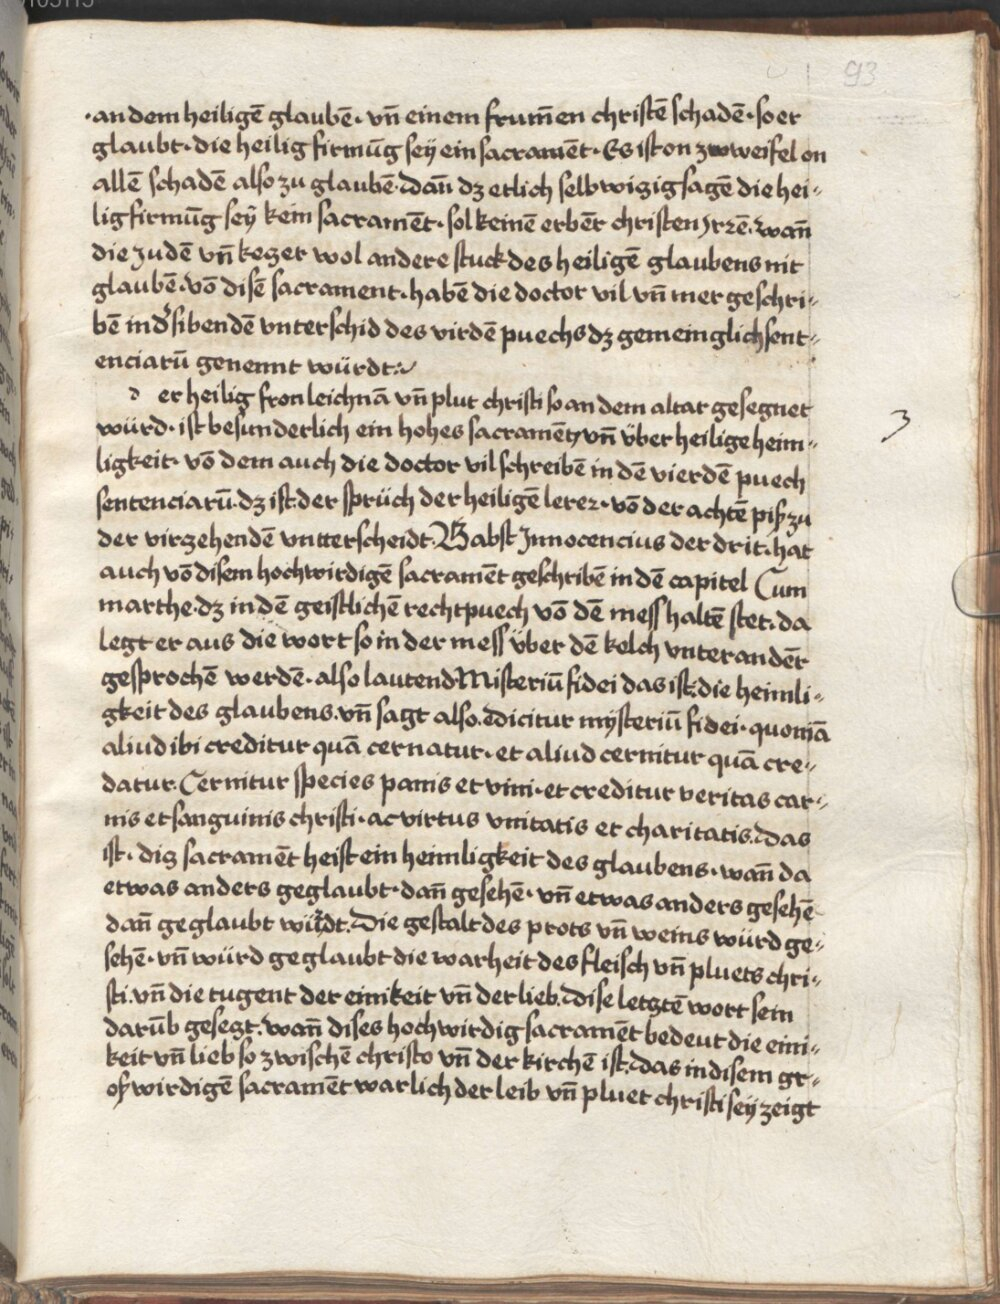 93
·an dem heiligē glaubē· vn̄ einem frum̄en christē schadē· so er
glaubt· die heilig firmūg seÿ ein sacramēt· Es ist on zwweifel on
allē schadē also zu glaubē· Wan̄ dz etlich selbwizig sagē die hei⸗
lig firmūg seÿ kein sacramēt· sol keinē erbēr christen yrrē· wan̄
die Judē vn̄ kezer wol andere stuck des heiligē glaubens nit
glaubē· vō disē sacrament· habē die doctor vil vn̄ mer geschri⸗
bē in d' sibendē vnterschid des virdē puechs dz gemeinglich sent⸗
enciarū genennt würdt·
d er heilig fronleichnā vn̄ plut christi so an dem altar gesegnet
würd· ist besunderlich ein hohes sacramēt, vn̄ über heilige heim⸗
ligkeit· vō dem auch die doctor vil schreibē in dē vierdē puech
sentenciarū· dz ist: der sprüch der heiligē lerer· vō der achtē piß zu
der virzehendē vntterscheidt· Babst Innocencius der drit· hat
auch vō disem hochwirdigē sacramēt geschribē in dē capitel Cum
marthe· dz in dē geistlichē rechtpuech vō dē mess haltē stet· da
legt er aus die wort so in der mess über dē kelch vnter andēr
gesprochē werdē· also lautend Misteriū fidei das ist: die heimli⸗
gkeit des glaubens· vn̄ sagt also· Dicitur mÿsteriū fidei· quoniā
aliud ibi creditur quā cernatur· et aliud cernitur quā cre⸗
datur· Cernitur species panis et vini· et creditur veritas car⸗
nis et sanguinis christi· ac virtus vnitatis et charitatis· Das
ist· diz sacramēt heist ein heimligkeit des glaubens· wan̄ da
etwas anders geglaubt· dan̄ gesehē· vn̄ etwas anders gesehē
dan̄ geglaubt würdt· Die gestalt des prots vn̄ weins würd ge⸗
sehē· vn̄ würd geglaubt die warheit des fleisch vn̄ pluets chri⸗
sti· vn̄ die tugent der einikeit vn̄ der lieb· Dise letztē wort sein
darūb gesezt: wan̄ dises hochwirdig sacramēt bedeut die eini⸗
keit vn̄ lieb so zwischē christo vn̄ der kirchē ist: das in disem gr⸗
oßwirdigē sacramēt warlich der leib vn̄ pluet christi seÿ zeigt
3